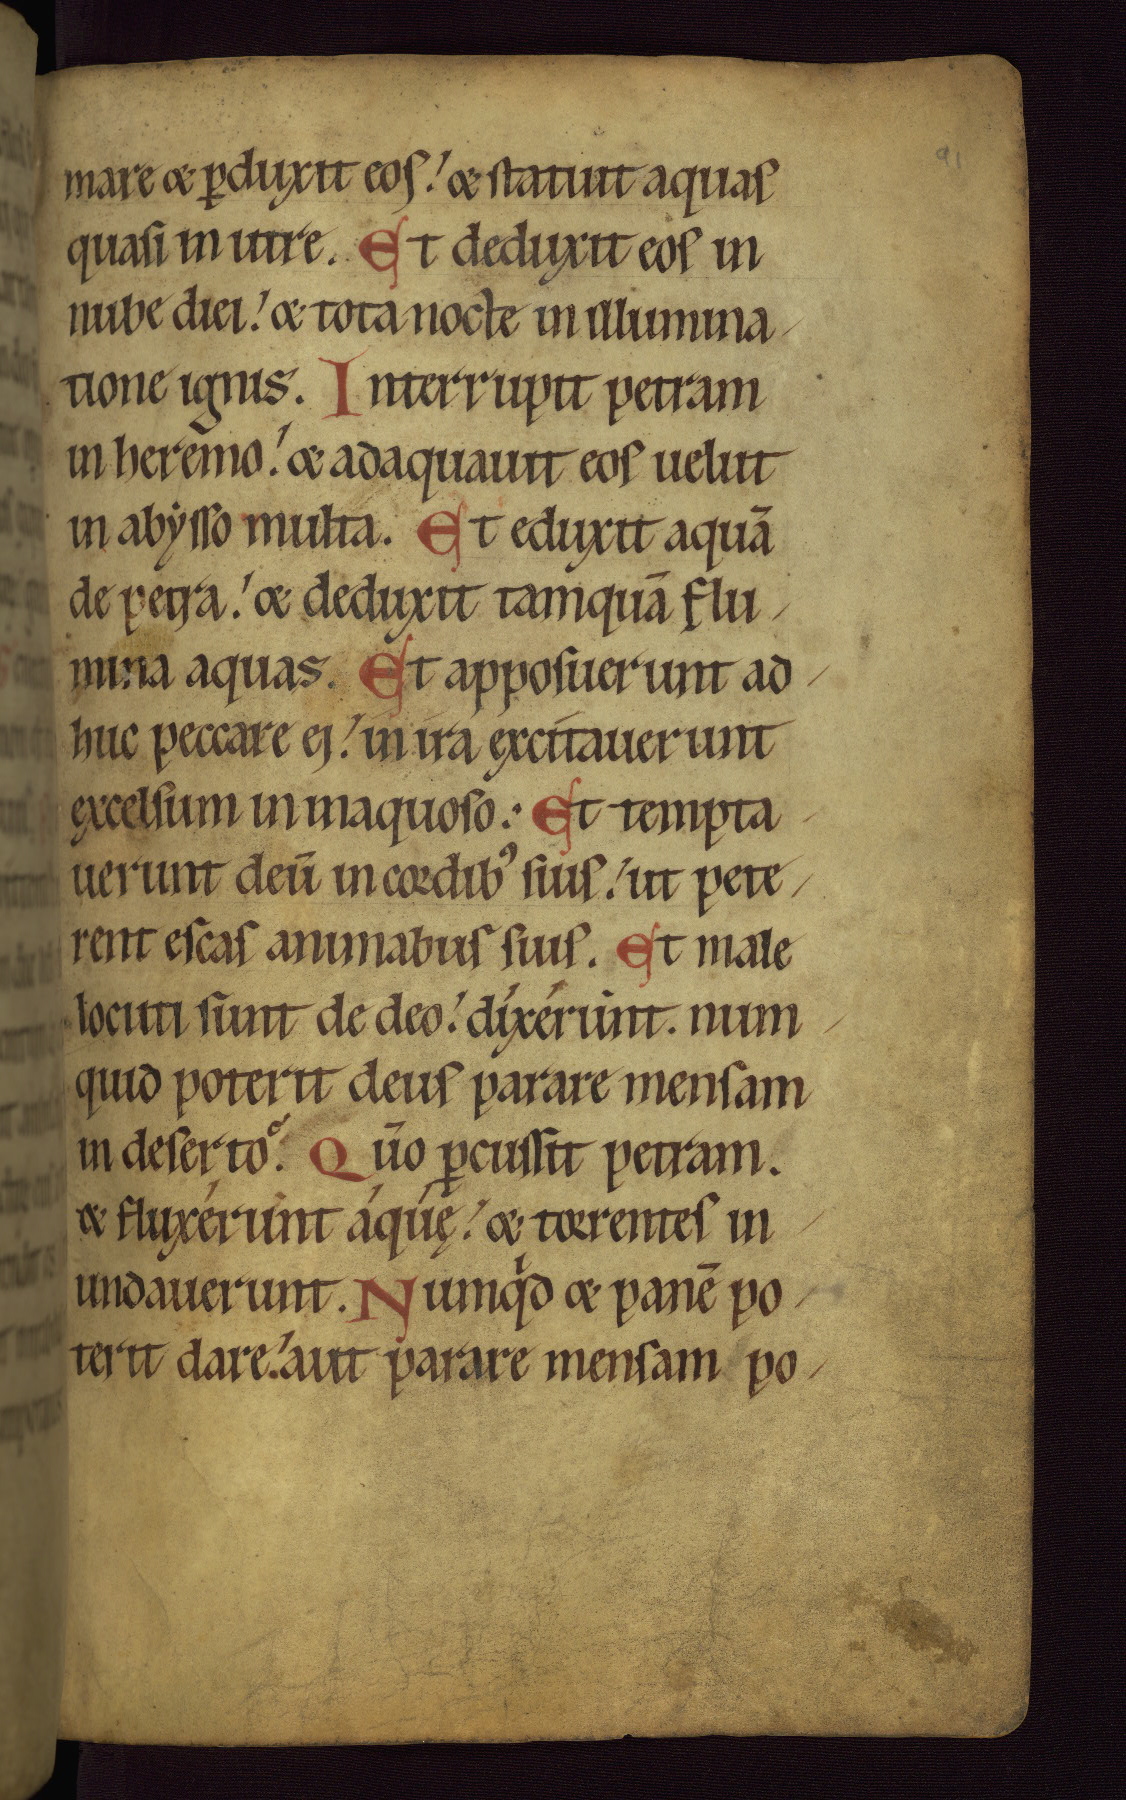 91
mare & ꝑduxit eos! & statuit aquas
quasi in utre. Et deduxit eos in
nube diei! & tota nocte in illumina
tione ignis. Interrupit petram
in heremo! & adaquauit eos uelut
in abẏsso multa. Et eduxit aquā
de petra! & deduxit tamquā flu
mina aquas. Et apposuerunt ad
huc peccare ei! in ira excitauerunt
excelsum in inaquoso. Et tempta
uerunt deū in cordib⁹ suis! ut pete
rent escas animabus suis. Et male
locuti sunt de deo! dixérunt. num
quid poterit deus parare mensam
in deserto? Qūo ꝑcussit petram.
& fluxérunt áquę! & torrentes in
undauerunt. Numqͥd & panē po
terit dare! aut parare mensam po